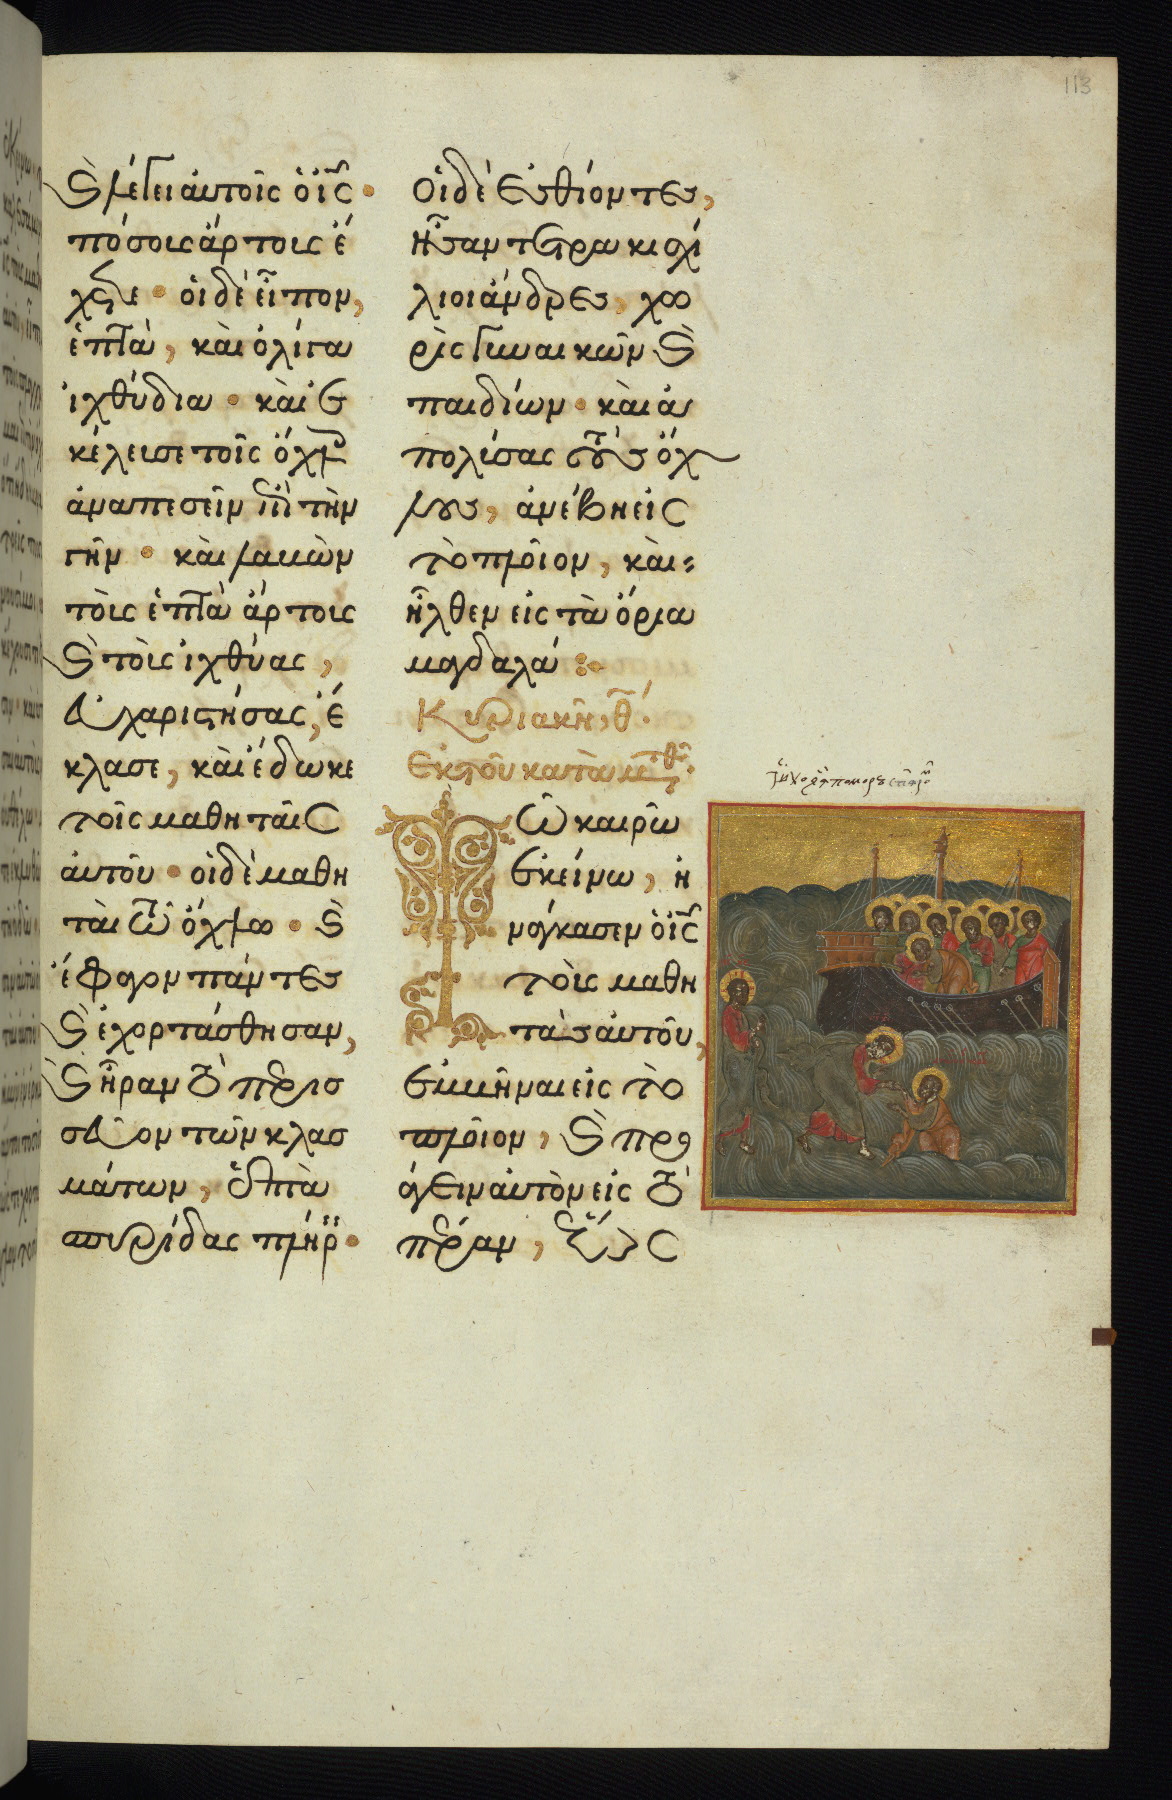 113
ϗ λέγει αὐτοῖς ὁ ἰς ·
πόσους ἄρτους ἔ
χετε · οἱ δὲ εἶπον,
ἑπτὰ, καὶ ὀλίγα
ἰχθύδια · καὶ ἐ
κέλευσε τοῖς ὄχλοις
ἀναπεσεῖν ἐπὶ τὴν
γῆν · καὶ λαβὼν
τοὺς ἑπτὰ ἄρτους
ϗ τοὺς ἰχθύας,
εὐχαριστήσας, ἔ
κλασε, καὶ ἔδωκε
τοῖς μαθηταῖς
αὐτοῦ · οἱ δὲ μαθη
ταὶ τῶ ὄχλω · ϗ
ἔφαγον πάντες
ϗ ἐχορτάσθησαν,
ϗ ἦραν τὸ περισ
σεῦον τῶν κλασ
μάτων, ἑπτὰ
σπυρίδας πλήρ ·
οἱ δὲ ἐσθίοντες,
ἦσαν τετρακισχί
λιοι ἄνδρες, χω
ρὶς γυναικῶν ϗ
παιδίων · καὶ ἀ
πολύσας τοὺς ὄχ
λους, ἀνέβη εἰς
τὸ πλοῖον, καὶ
ἦλθεν εἰς τὰ ὅρια
μαγδαλά :
Κυριακῆ, θ ·
Ἐκ τοῦ κατὰ ματθ ·
Τῶ καιρῶ
ἐκείνω, ἠ
νάγκασεν ὁ ἰς
τοὺς μαθη
τὰς αὐτοῦ,
ἐμβῆναι εἰς τὸ
πλοῖον, ϗ προ
άγειν αὐτὸν εἰς τὸ
πέραν, ἕως